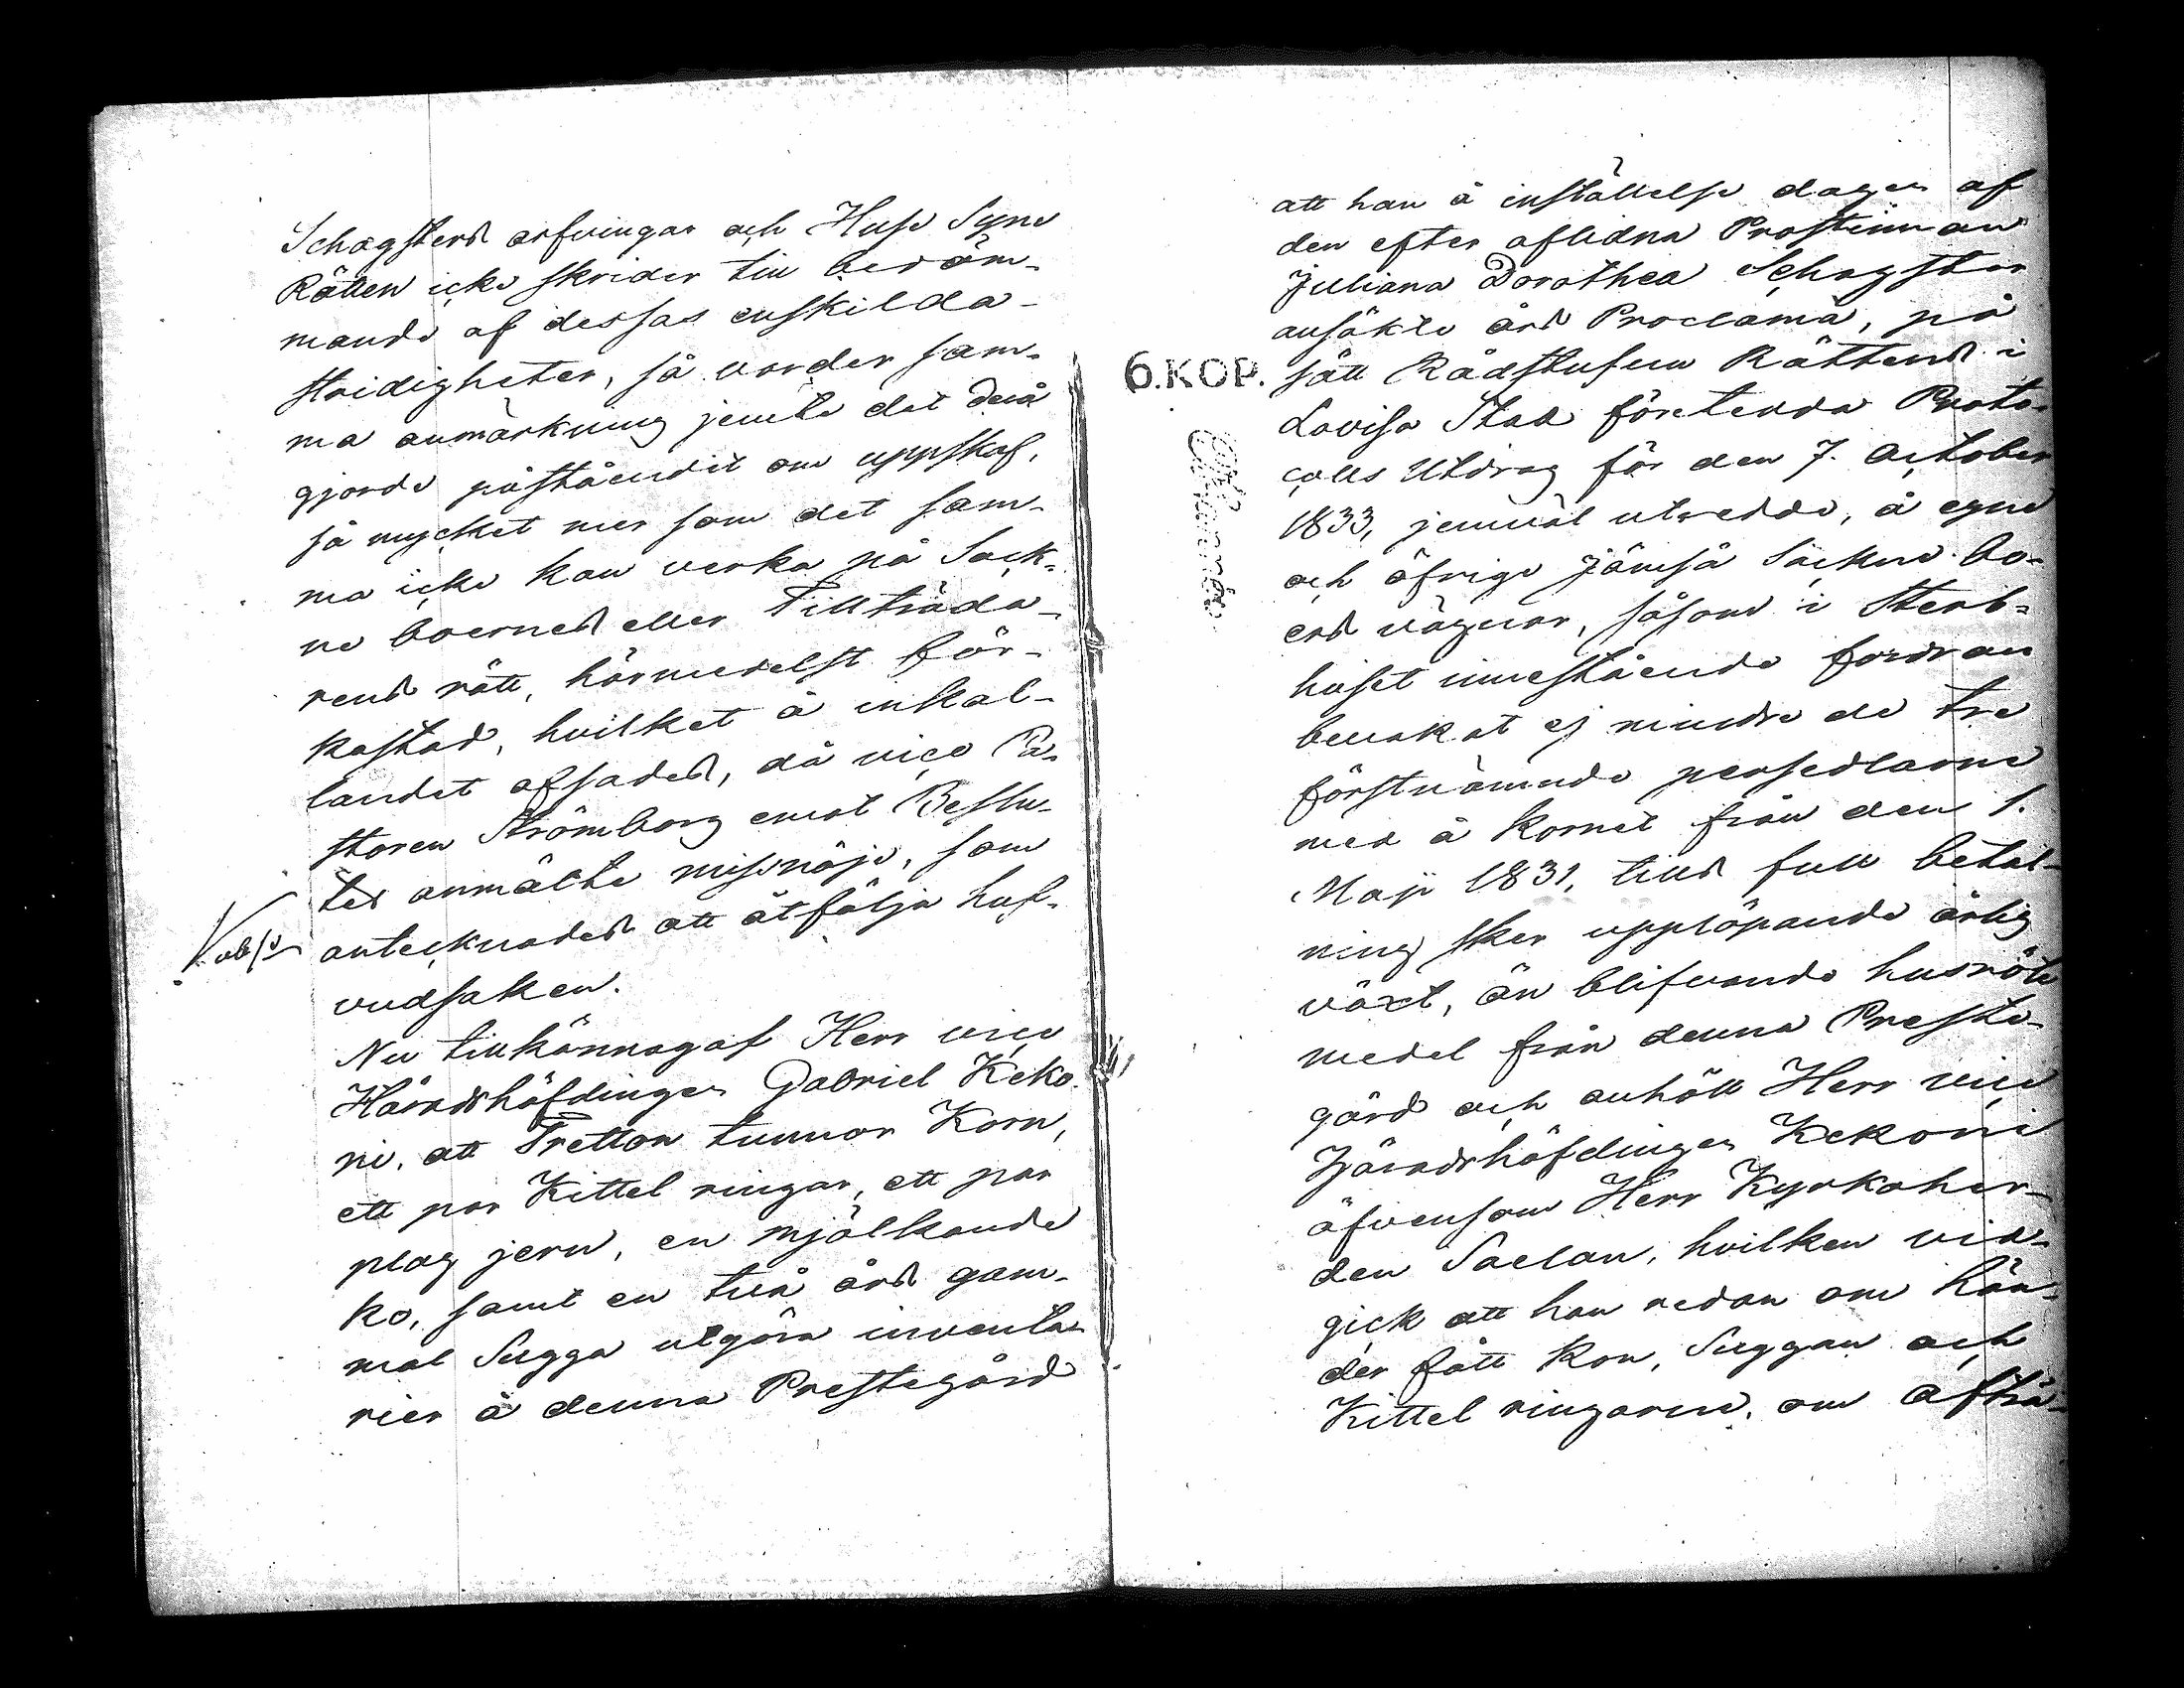 Schogsters arfvingar och Huse Syne
Rätten icke skrider till bedöm-
mande af dessas enskilda
stridigheter, så varder sam-
ma anmärkning jemte det derå
gjorde påståendet om uppskof,
så mycket mer som det sam-
ma icke kan verka på Sock-
ne boernes eller Tillträda-
rens rätt, härmedelst för-
kastad, hvilket å inkal-
landet afsades, då vice Pa-
storen Strömborg emot Beslu-
tet anmälte missnöje, som
antecknades att åtfölja huf-
vudsaken.
Nu tillkännagaf Herr vice
Häradshöfdingen Gabriel Keko-
ni, att Tretton tunnor Korn,
ett par Kittel ringar, ett par
plog jern, en mjölkande
ko, samt en två års gam-
mal Sugga utgöra inventa-
rier å denna Prestegård
6.KOP.
att han å inställelse dagen af
den efter aflidna Prostinnan
Juliana Dorothea Schogster
ansökte års Proclama, på
sätt Rådstufvu Rättens i
Lovisa Stad företedda Proto-
colls Utdrag för den 7. October
1833, jemväl utvedde, å egne
och öfrige Jämsä Sockne bo-
ers vägnar, såsom i Sterb-
huset innestående fordran
bevakat ej mindre de tre
förstnämnde persedlarne
med å Kornet från den 1.
Maji 1831, tills full betal-
ning sker upplöpande årlig
växt, än blifvande husröte
medel från denna Preste-
gård och anhöll Herr vice
Häradshöfdingen Kekoni
äfvensom Herr Kyrkoher-
den Saelan, hvilken vid-
gick att han redan om hän-
der fått Kon, Suggan och
Kittel ringarne, om afträ-